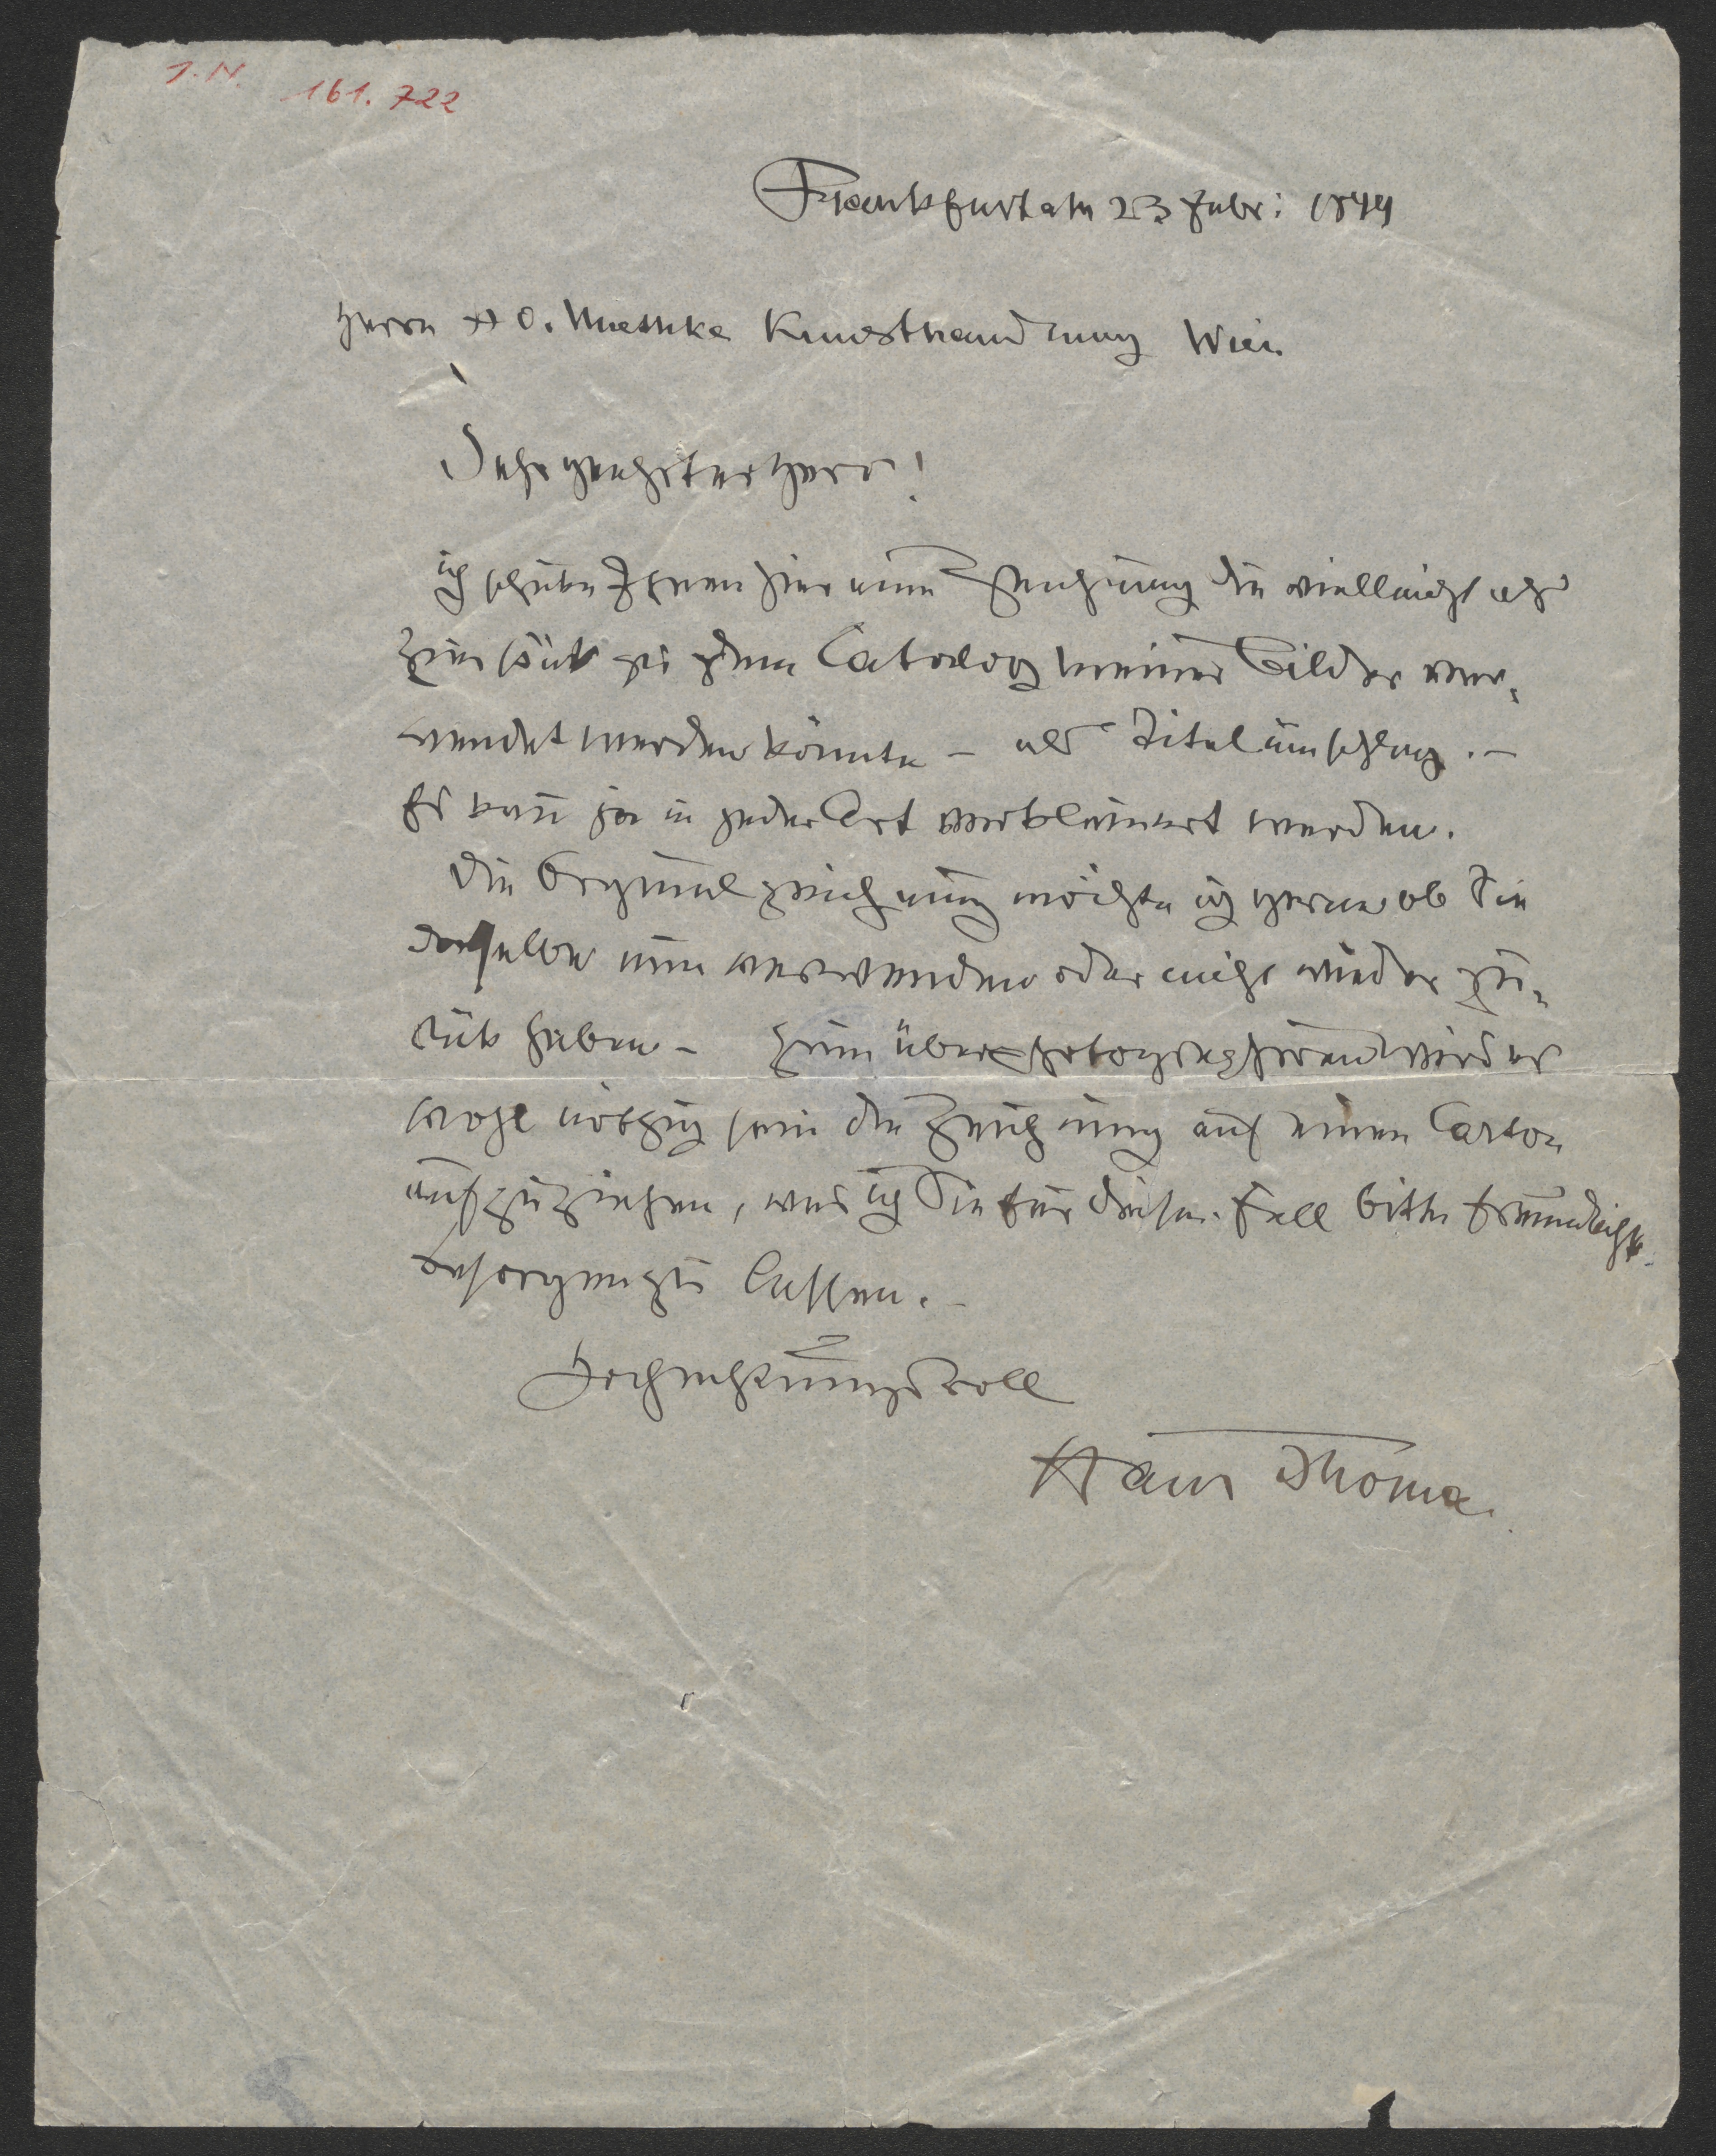 I. N. 161.722
Frankfurt a M 23 Febr: 1899
Herrn H O. Miethke Kunsthandlung Wien
Sehr geehrter Herr!
ich schicke Ihnen hier eine Zeichnung die vielleicht als
zu dem Catalog meiner Bilder ver-
wendet werden könnte – als Titelumschlag. –
Es kann ja in jeder Art verkleinert werden.
Die Orginalzeichnung möchte ich gerne ob Sie
dieselbe nun verwenden oder nicht wieder zu-
rük haben – Zum überphotographieren wird es
wohl nöthig sein die Zeichnung auf einen Carton
aufzuziehen, was ich Sie für diesen Fall bitte freundlichst
besorgen zu lassen. –
Hochachtungsvoll
Hans Thoma.